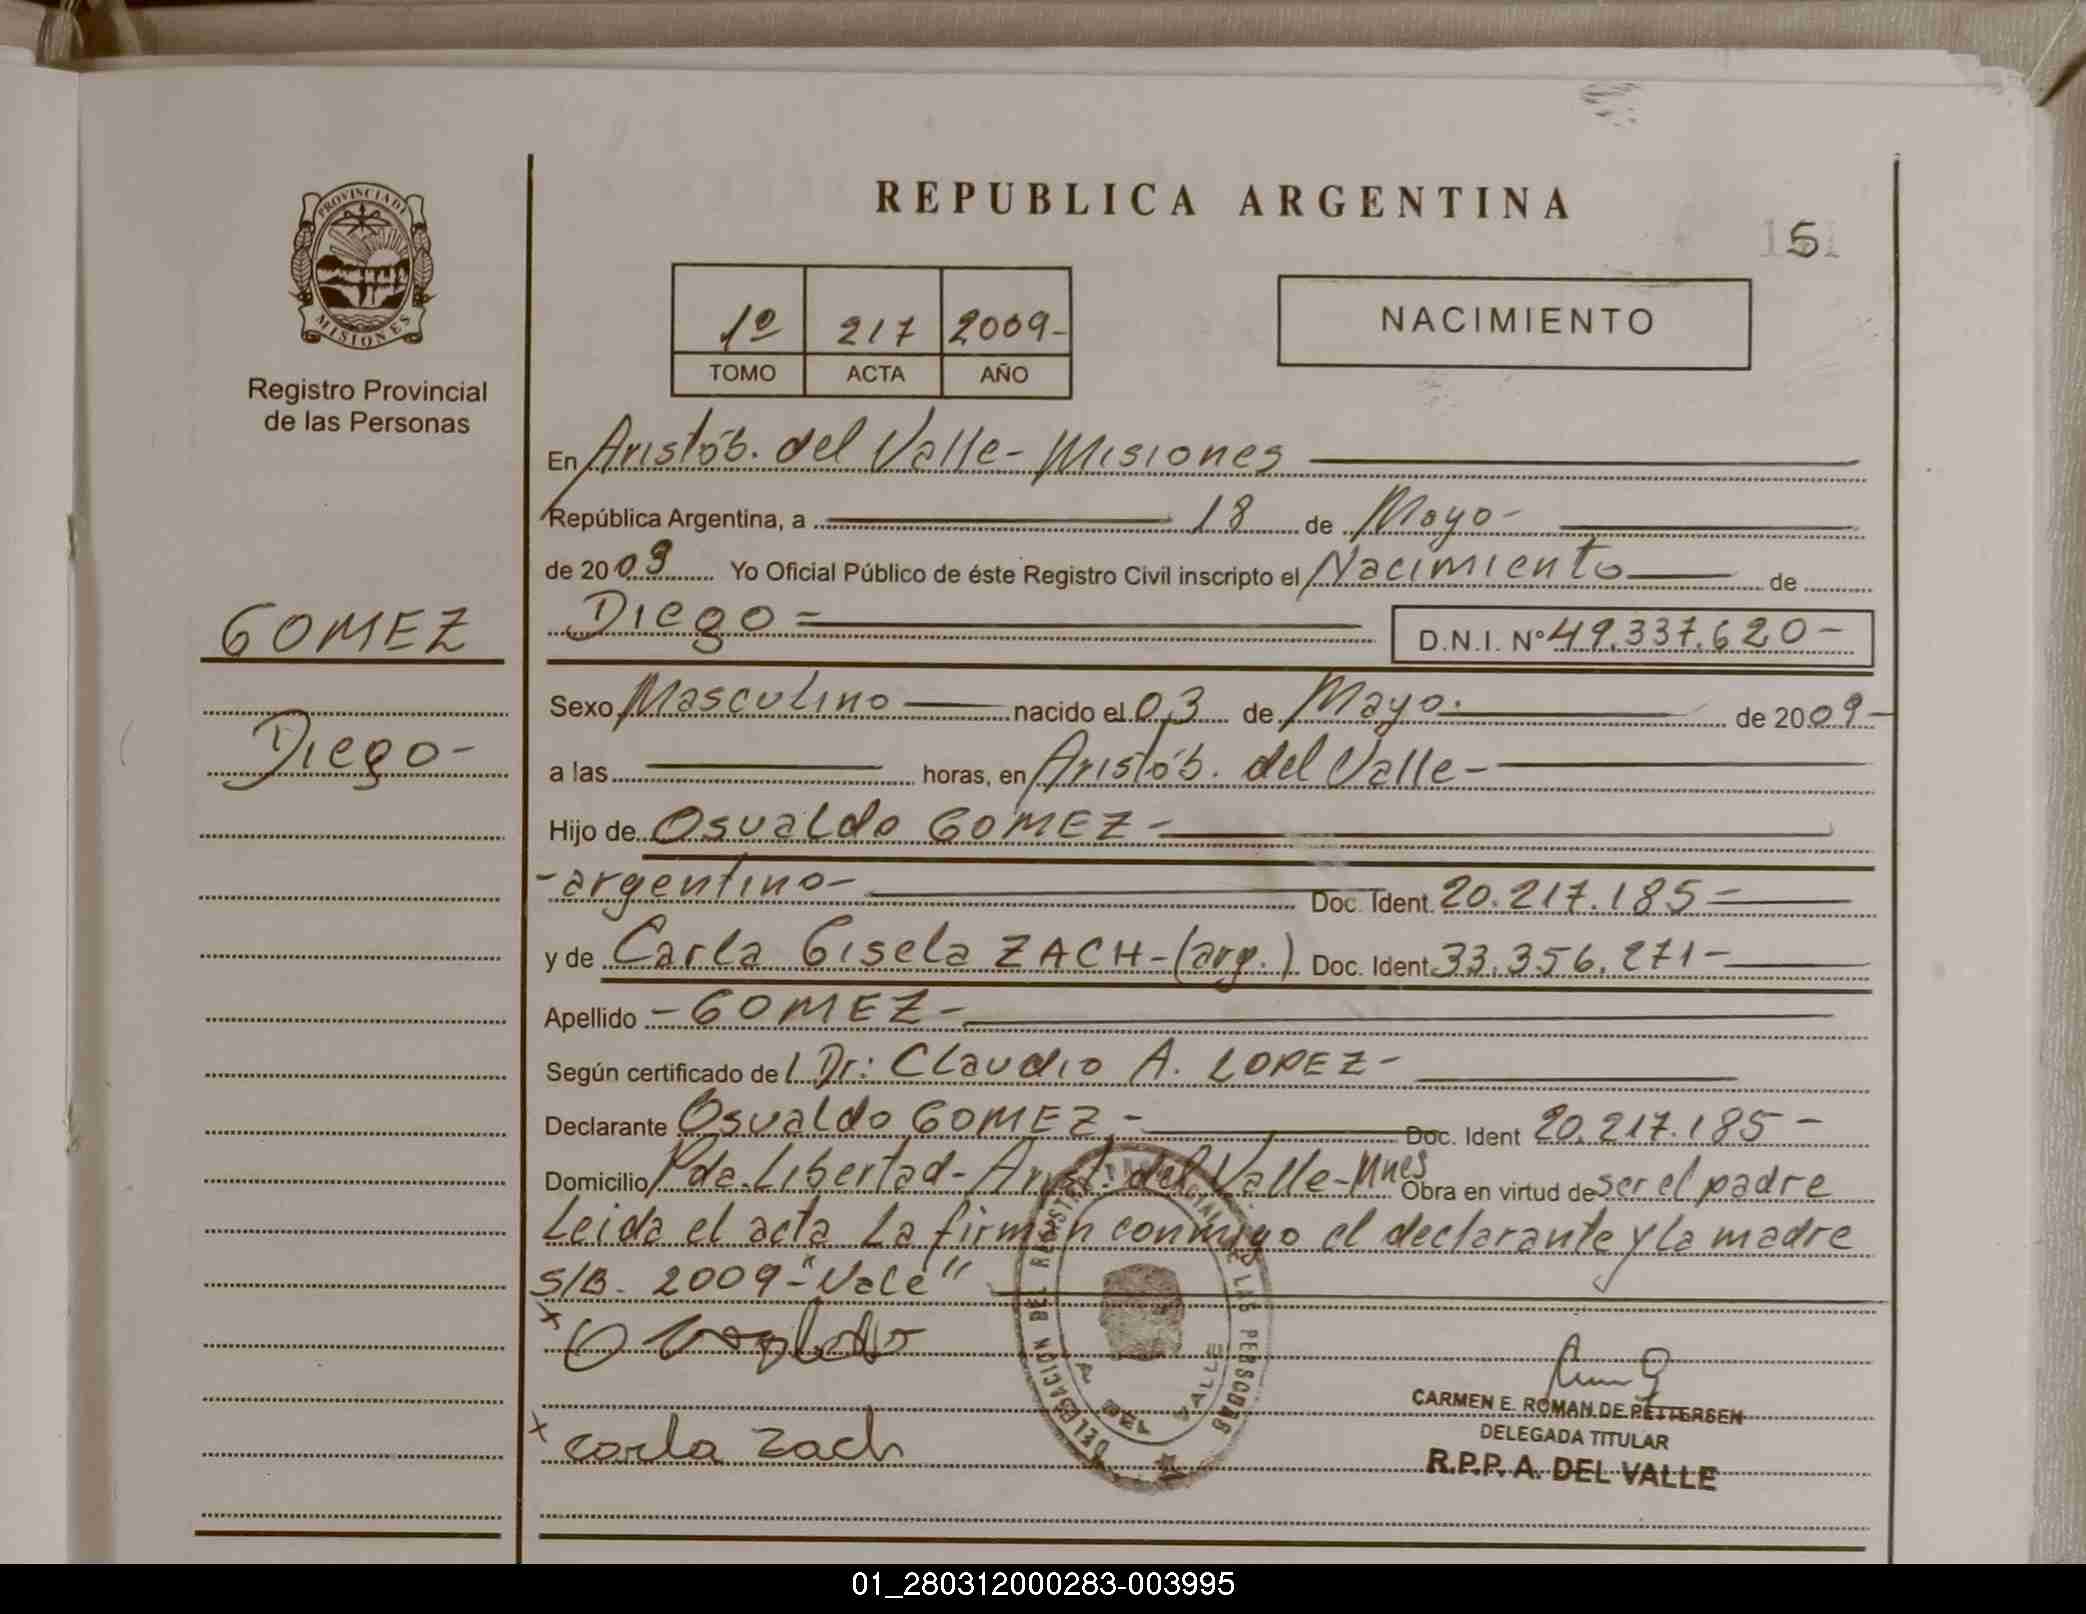 REPUBLICA ARGENTINA
PROVINCIA DE
MISIONES
Registro Provincial
de las Personas
1º 217 2009-
TOMO ACTA AÑO
NACIMIENTO
En Aristób. del Valle - Misiones
República Argentina, a 18 de Mayo-
de 2009 Yo Oficial Público de éste Registro Civil inscripto el Nacimiento de
GOMEZ
Diego-
Diego =
D.N.I. Nº 49.337.620-
Sexo Masculino nacido el 03 de Mayo. de 2009-
a las horas, en Aristób. del Valle-
Hijo de Osvaldo GOMEZ-
-argentino- Doc. Ident. 20.217.185=
y de Carla Gisela ZACH-(arg.) Doc. Ident. 33.356.271-
Apellido -GOMEZ-
Según certificado de l Dr: Claudio A. LOPEZ-
Declarante Osvaldo GOMEZ,- Doc. Ident 20.217.185-
Domicilio Pda. Libertad- Arist. del Valle-Mnes Obra en virtud de ser el padre
Leida el acta La firman conmigo el declarante y la madre
S/B. 2009-"Vale"
x
x carla zach
DELEGACION DEL REGISTRO PROVINCIAL DE LAS PERSONAS
VALLE
CARMEN E. ROMAN DE PETTERSEN
DELEGADA TITULAR
R.P.P. A. DEL VALLE
01_280312000283-003995